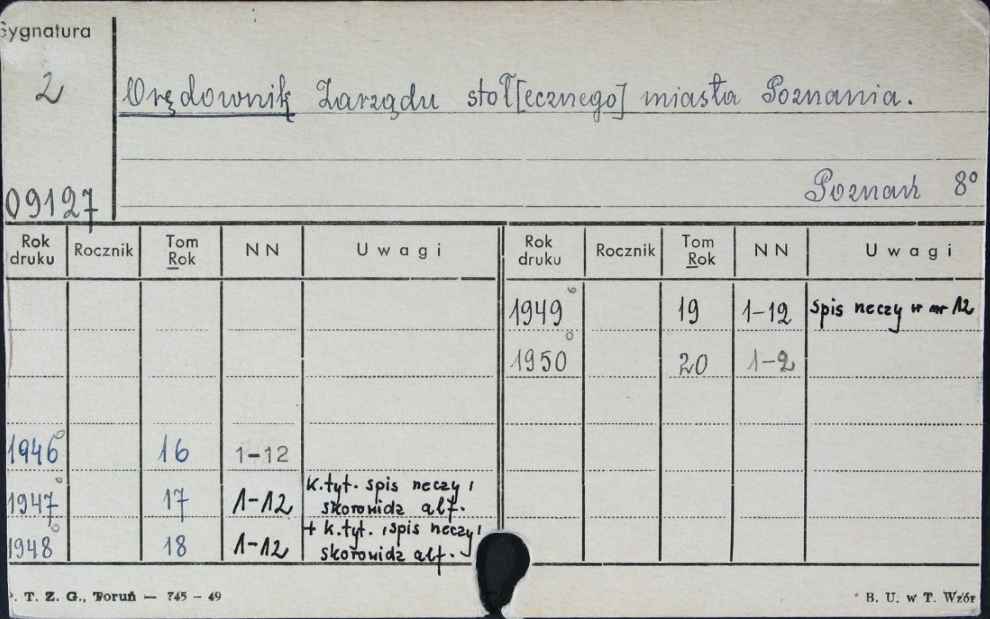 Sygnatura
2
Orędownik Zarządu stoł[ecznego] miasta Poznania.
Poznań 8°
09127
Rok druku Rocznik Tom Rok NN Uwagi Rok druku Rocznik Tom Rok NN Uwagi
1949° 19 1-12 spis rzeczy w nr 12
1950° 20 1-2
1946° 16 1-12
1947° 17 1-12 k.tyt. spis rzeczy i skorowidz alf.
1948° 18 1-12 + k.tyt. i spis rzeczy i skorowidz alf.
. T. Z. G., Toruń — 745 - 49
B. U. w T. Wzór